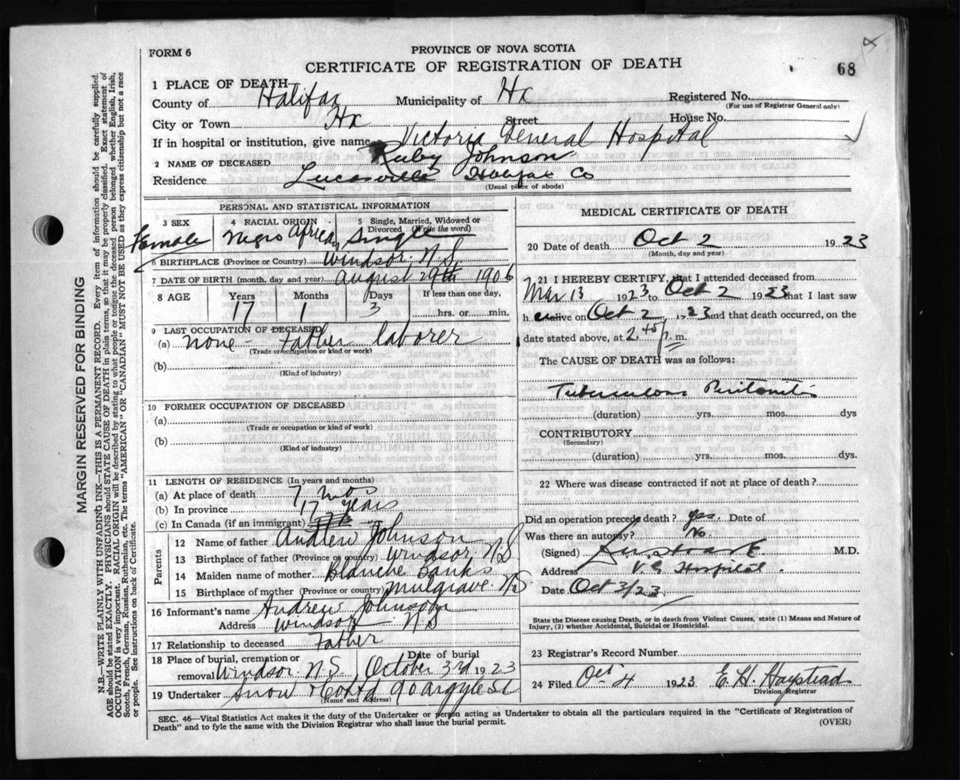 FORM 6
PROVINCE OF NOVA SCOTIA
CERTIFICATE OF REGISTRATION OF DEATH
68
1 PLACE OF DEATH
County of Halifax Municipality of Hx Registered No.
(For use of Registrar General only)
City or Town Hx Street House No.
If in hospital or institution, give name Victoria General Hospital
2 NAME OF DECEASED Ruby Johnson
Residence Lucasville Halifax Co
(Usual place of abode)
PERSONAL AND STATISTICAL INFORMATION
3 SEX Female
4 RACIAL ORIGIN Negro African
5 Single, Married, Widowed or Divorced (write the word) Single
6 BIRTHPLACE (Province or Country) Windsor N.S.
7 DATE OF BIRTH (month, day and year) August 29th 1906
8 AGE Years Months Days If less than one day,
17 1 3 hrs. or min.
9 LAST OCCUPATION OF DECEASED
(a) none - Father laborer
(Trade or occupation or kind of work)
(b)
(Kind of industry)
10 FORMER OCCUPATION OF DECEASED
(a)
(Trade or occupation or kind of work)
(b)
(Kind of industry)
11 LENGTH OF RESIDENCE (In years and months)
(a) At place of death 7 mos
(b) In province 17 years
(c) In Canada (if an immigrant)
Parents
12 Name of father Andrew Johnson
13 Birthplace of father (Province or country) Windsor NS
14 Maiden name of mother Blanche Banks
15 Birthplace of mother (Province or country) Mulgrave NS
16 Informant's name Andrew Johnson
Address Windsor N.S
17 Relationship to deceased Father
18 Place of burial, cremation or removal Windsor N.S. Date of burial October 3rd 1923
19 Undertaker Snow & Co Ltd 90 Argyle St
(Name and Address)
MEDICAL CERTIFICATE OF DEATH
20 Date of death Oct 2 1923
(Month, day and year)
21 I HEREBY CERTIFY, that I attended deceased from
Mar 13 1923 to Oct 2 1923 that I last saw
h er alive on Oct 2 1923 and that death occurred, on
date stated above, at 2.45 p.m.
The CAUSE OF DEATH was as follows:
Tuberculous Peritonitis
(duration) yrs. mos. dys
CONTRIBUTORY
(Secondary)
(duration) yrs. mos. dys.
22 Where was disease contracted if not at place of death?
Did an operation precede death? Yes. Date of
Was there an autopsy? No.
(Signed) M.D.
Address V. G Hospital.
Date Oct 3/23
State the Disease causing Death, or in death from Violent Causes, state (1) Means and Nature of Injury, (2) whether Accidental, Suicidal or Homicidal.
23 Registrar's Record Number
24 Filed Oct 4 1923 E. H.
Division Registrar
SEC. 46—Vital Statistics Act makes it the duty of the Undertaker or person acting as Undertaker to obtain all the particulars required in the "Certificate of Registration of
Death" and to fyle the same with the Division Registrar who shall issue the burial permit. (OVER)
MARGIN RESERVED FOR BINDING
N.B.—WRITE PLAINLY WITH UNFADING INK—THIS IS A PERMANENT RECORD. Every item of information should be carefully supplied.
AGE should be stated EXACTLY. PHYSICIANS should STATE CAUSE OF DEATH in plain terms, so that it may be properly classified. Exact statement of
OCCUPATION is very important. RACIAL ORIGIN will be described by stating to what people or tongue the deceased person belonged whether English, Irish,
Scotch, French, German, Russian, Ruthenian, etc. The terms "AMERICAN" OR "CANADIAN" MUST NOT BE USED as they express citizenship but not a race
or people. See instructions on back of Certificate.